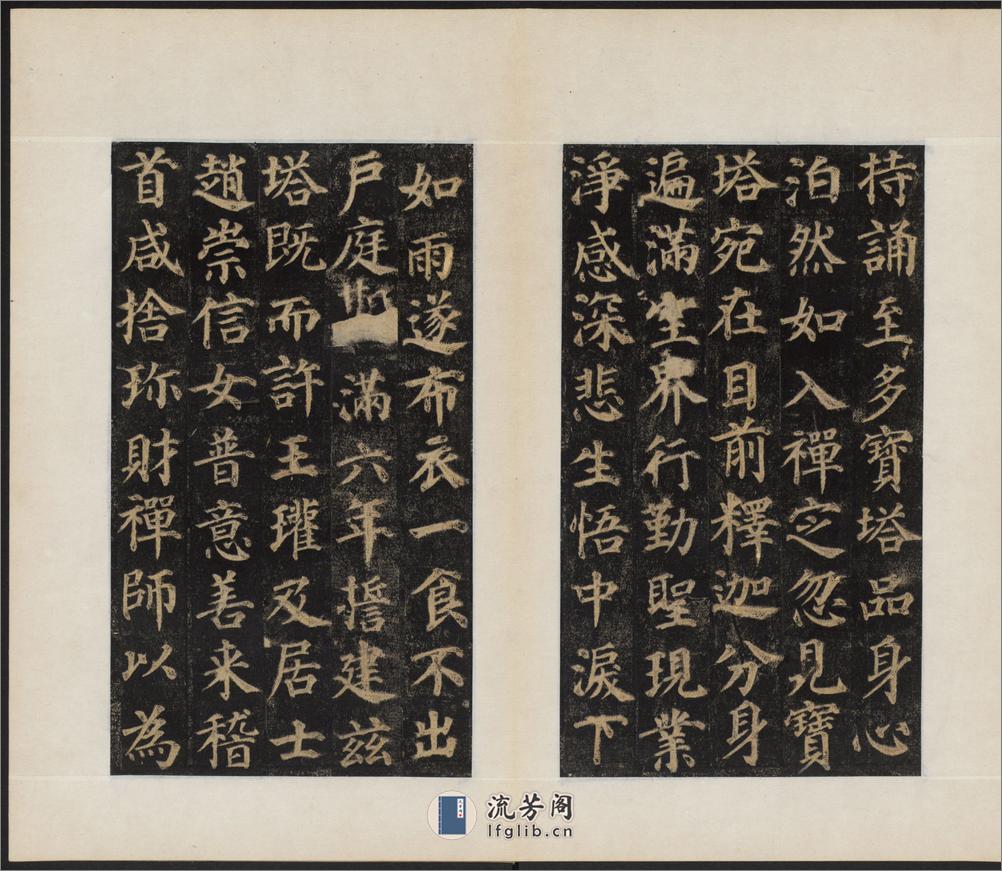 持誦至多寶塔品身心
泊然如入禪㝎忽見寶
塔宛在目前釋迦分身
遍滿空界行勤聖現業
淨感深悲生悟中淚下
如雨遂布衣一食不出
戶庭期滿六年誓建茲
塔既而許王瓘及居士
趙崇信女普意善來稽
首咸捨珎財禪師以為
流芳阁
lfglib.cn